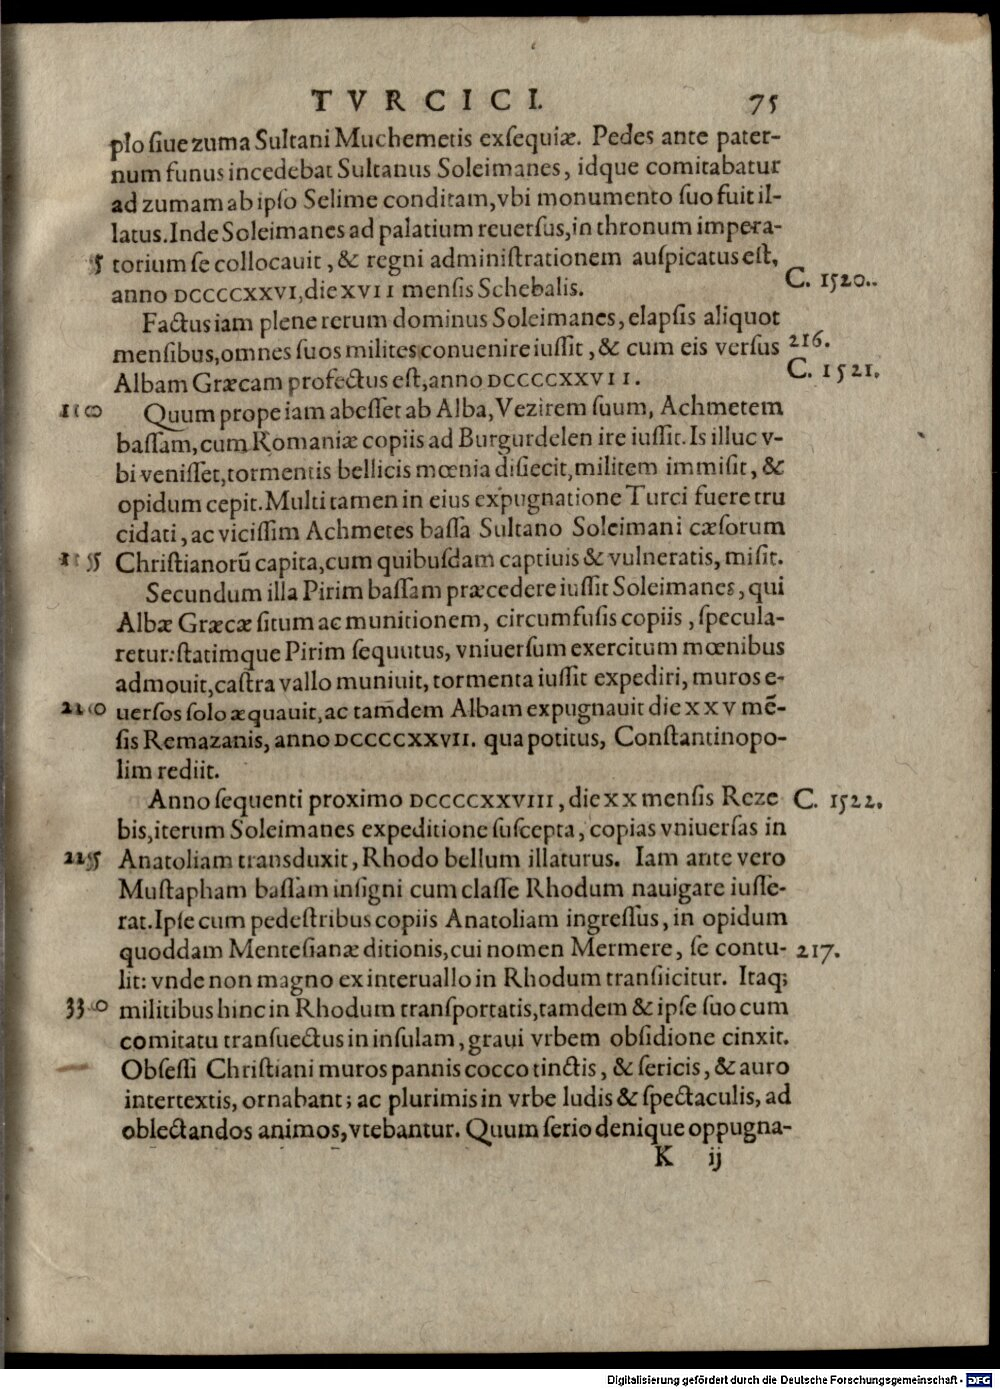 TVRCICI. 75
plo siue zuma Sultani Muchemetis exsequiæ. Pedes ante pater-
num funus incedebat Sultanus Soleimanes, idque comitabatur
ad zumam ab ipso Selime conditam, vbi monumento suo fuit il-
latus. Inde Soleimanes ad palatium reuersus, in thronum impera-
5 torium se collocauit, & regni administrationem auspicatus est,
anno DCCCCXXVI, die XVII mensis Schebalis. C. 1520.
Factus iam plene rerum dominus Soleimanes, elapsis aliquot
mensibus, omnes suos milites conuenire iussit, & cum eis versus 216.
Albam Græcam profectus est, anno DCCCCXXVII. C. 1521.
10 Quum prope iam abesset ab Alba, Vezirem suum, Achmetem
bassam, cum Romaniæ copiis ad Burgurdelen ire iussit. Is illuc v-
bi venisset, tormentis bellicis mœnia disiecit, militem immisit, &
opidum cepit. Multi tamen in eius expugnatione Turci fuere tru
cidati, ac vicissim Achmetes bassa Sultano Soleimani cæsorum
15 Christianorũ capita, cum quibusdam captiuis & vulneratis, misit.
Secundum illa Pirim bassam præcedere iussit Soleimanes, qui
Albæ Græcæ situm ac munitionem, circumfusis copiis, specula-
retur: statimque Pirim sequutus, vniuersum exercitum mœnibus
admouit, castra vallo muniuit, tormenta iussit expediri, muros e-
20 uersos solo æquauit, ac tamdem Albam expugnauit die XXV mē-
sis Remazanis, anno DCCCCXXVII. qua potitus, Constantinopo-
lim rediit.
Anno sequenti proximo DCCCCXXVIII, die XX mensis Reze C. 1522.
bis, iterum Soleimanes expeditione suscepta, copias vniuersas in
25 Anatoliam transduxit, Rhodo bellum illaturus. Iam ante vero
Mustapham bassam insigni cum classe Rhodum nauigare iusse-
rat. Ipse cum pedestribus copiis Anatoliam ingressus, in opidum
quoddam Mentesianæ ditionis, cui nomen Mermere, se contu- 217.
lit: vnde non magno ex interuallo in Rhodum transiicitur. Itaq;
30 militibus hinc in Rhodum transportatis, tamdem & ipse suo cum
comitatu transuectus in insulam, graui vrbem obsidione cinxit.
Obsessi Christiani muros pannis cocco tinctis, & sericis, & auro
intertextis, ornabant; ac plurimis in vrbe ludis & spectaculis, ad
oblectandos animos, vtebantur. Quum serio denique oppugna-
K ij
Digitalisierung gefördert durch die Deutsche Forschungsgemeinschaft - DFG